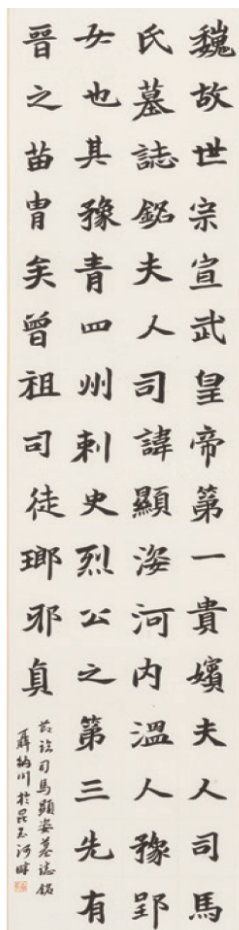 魏故世宗宣武皇帝第一貴嬪夫人司馬
氏墓誌銘夫人司諱顯姿河内溫人豫郢
女也其豫青四州刺史烈公之第三先有
晉之苗胄矣曾祖司徒瑯邪貞
节临司馬顯姿墓誌銘
聶納川於昆玉河畔